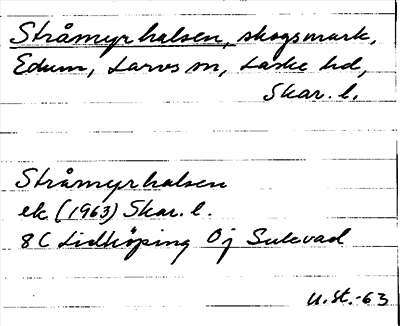 Stråmyrhalsen, skogsmark,
Edum, Larvs sn, Laske hd,
Skar. l.
Stråmyrhalsen
ek (1963) Skar. l.
8C Lidköping 0j Sulevad
U.St.-63